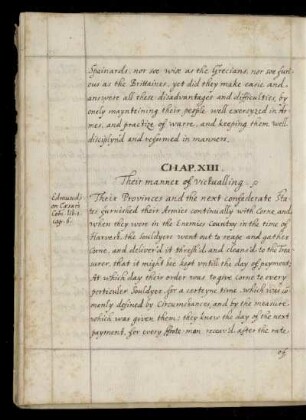 Spainards, nor soe wise as the Grecians, nor soe furi-
ous as the Brittaines, yet did they make easie and
answere all these disadvantages and difficulties, by
onely mayntaining their people well exercized in Ar-
mes, and practize of warre, and keeping them well
disciplynd and reformed in manners.
CHAP. XIII.
Their manner of victualling
Edmunds
on Cæsars
Com: lib: 1
Their Provinces and the next confœderate Sta-
tes furnished their Armies continually with Corne, and
when they were in the Enemies Country in the time of
Harvest, the Souldyers went out to reape and gather
Corne, and deliver'd it thresh'd and cleans'd to the Trea-
surer, that it might bee kept untill the day of payment:
At which day their order was to give Corne to every
perticuler Souldyer, for a certeyne time, which was co-
monly defined by Circumstances, and by the measure
which was given them, they knew the day of the next
payment, for every ffoote-man receav'd after the rate
of